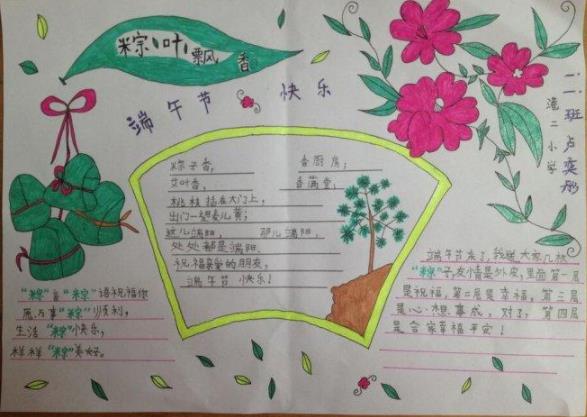 粽叶飘香
端午节 快乐
粽子香, 香厨房;
艾叶香, 香满堂;
桃枝插在大门上,
出门一望麦儿黄;
这儿端阳, 那儿端阳,
处处都是端阳.
祝福亲爱的朋友,
端午节快乐!
"粽"言"粽"语祝福你
愿万事"粽"顺利,
生活"粽"快乐,
样样"粽"美好。
端午节来了,我送大家几枚
"粽"子,友情是外皮,里面第一层
是祝福,第二层是幸福,第三层
是心想事成,对了,第四层
是合家幸福平安!
二小学
二.班 卢奕彤